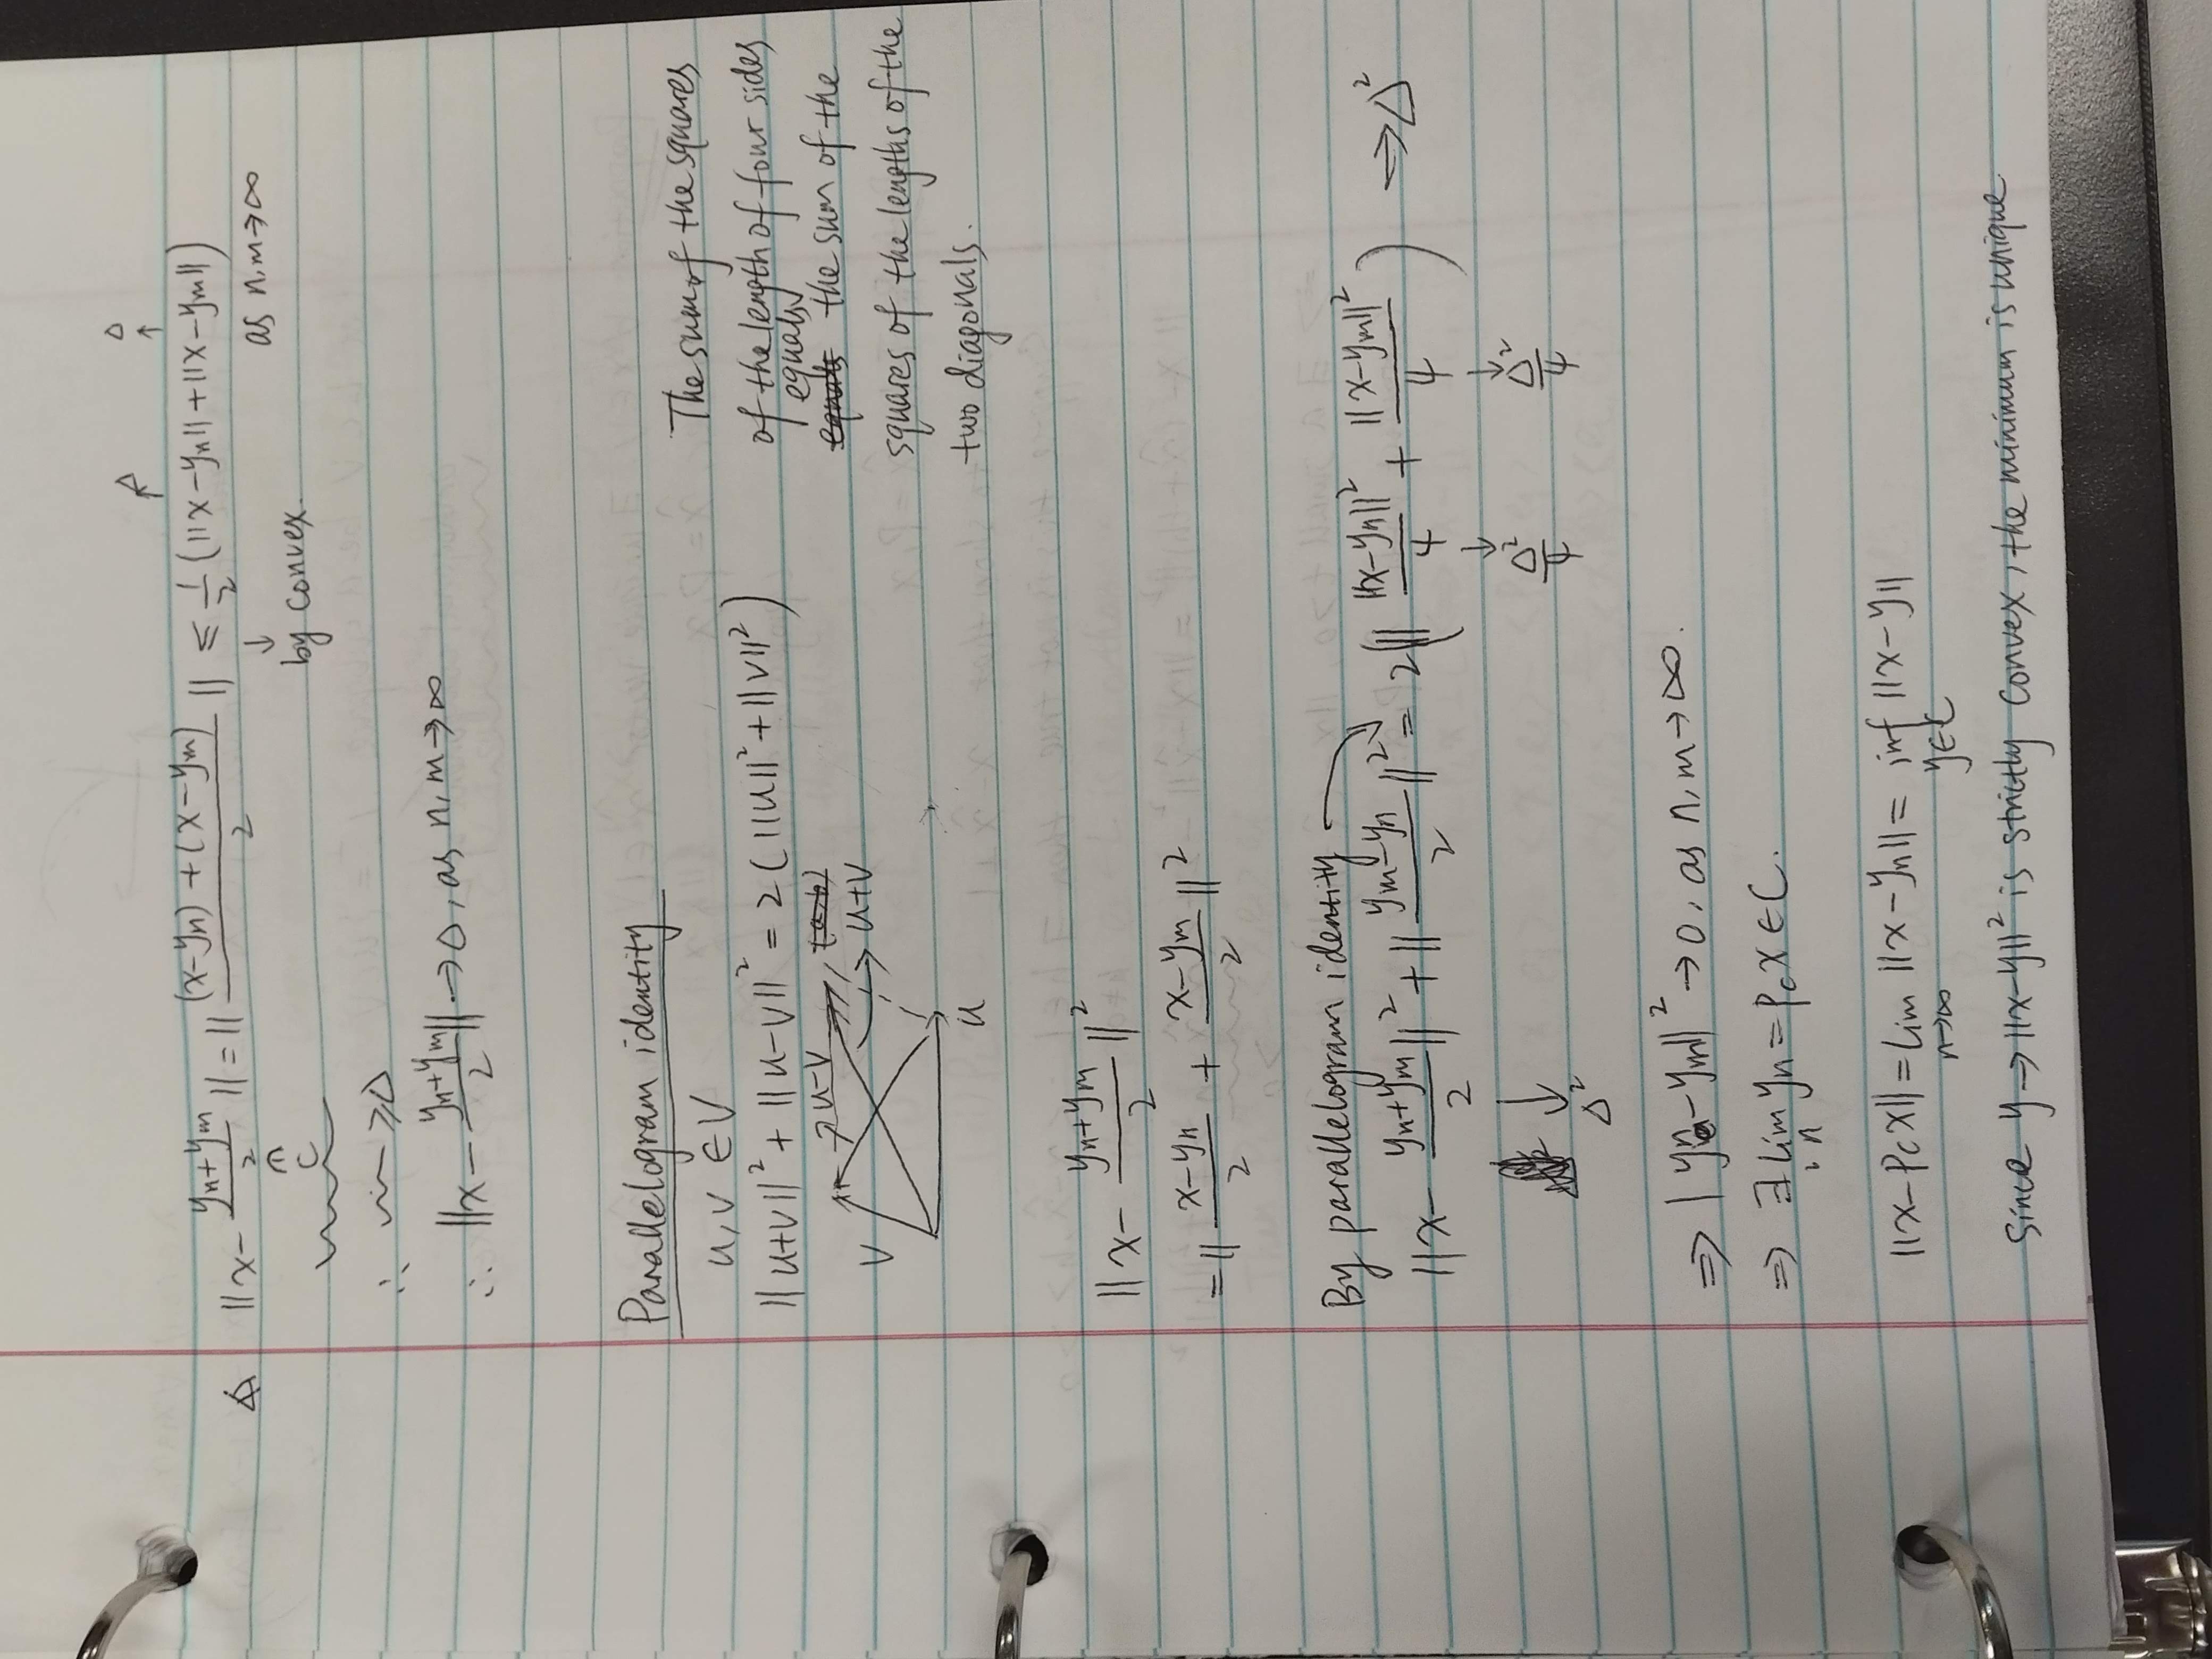 Δ Δ
↑ ↑
∢ ||x - (yn+ym)/2|| = ||((x-yn)+(x-ym))/2|| ≤ 1/2 (||x-yn||+||x-ym||)
∈ C ↓ as n,m→∞
by convex.
∴ ≥Δ
∴ ||x - (yn+ym)/2|| → Δ, as n,m→∞
Parallelogram identity
u,v ∈ V
||u+v||² + ||u-v||² = 2(||u||²+||v||²)
v u-v u+v
u
The sum of the squares
of the length of four sides
equals the sum of the
squares of the lengths of the
two diagonals.
||x - (yn+ym)/2||²
= ||(x-yn)/2 + (x-ym)/2||²
By parallelogram identity
||x - (yn+ym)/2||² + ||(ym-yn)/2||² = 2(||x-yn||²/4 + ||x-ym||²/4) ⇒ Δ²
↓ ↓ ↓
Δ² Δ²/4 Δ²/4
⇒ |yn-ym||² → 0, as n,m→∞.
⇒ ∃ lim yn = Pcx ∈ C.
n
||x-Pcx|| = lim ||x-yn|| = inf ||x-y||
n→∞ y∈C
Since y→||x-y||² is strictly convex, the minimum is unique